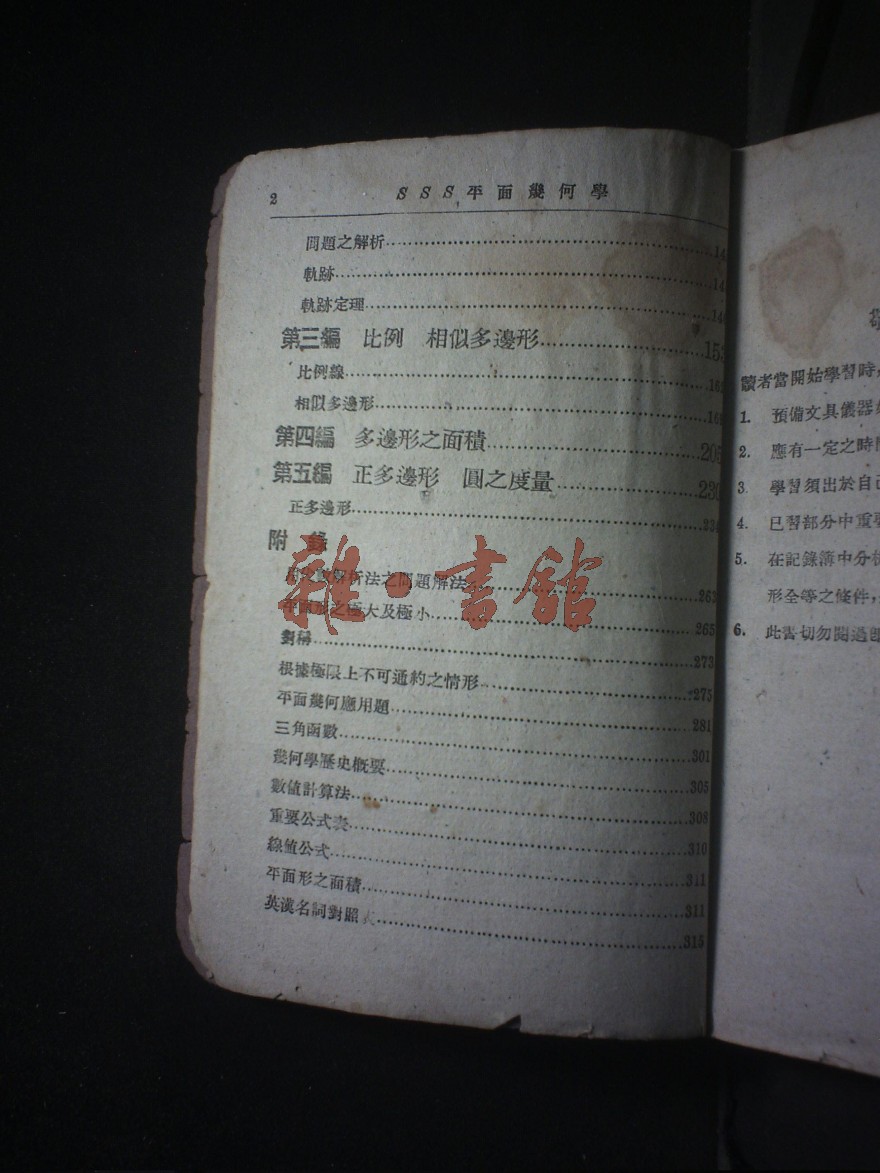 2 SSS平面幾何學
問題之解析
軌跡
軌跡定理
第三編 比例 相似多邊形 153
比例線
相似多邊形
第四編 多邊形之面積 205
第五編 正多邊形 圓之度量 230
正多邊形
附 錄
解析法之問題解法 263
平面形之極大及極小 265
對稱 273
根據極限上不可通約之情形 275
平面幾何應用題 281
三角函數 301
幾何學歷史概要 305
數値計算法 308
重要公式表 310
線値公式 311
平面形之面積 311
英漢名詞對照表 315
雜·書館
讀者當開始學習時
1. 預備文具儀器
2. 應有一定之時
3 學習須出於自
4. 已習部分中重
5. 在記錄簿中分
形全等之條件,
6. 此書切勿閱過